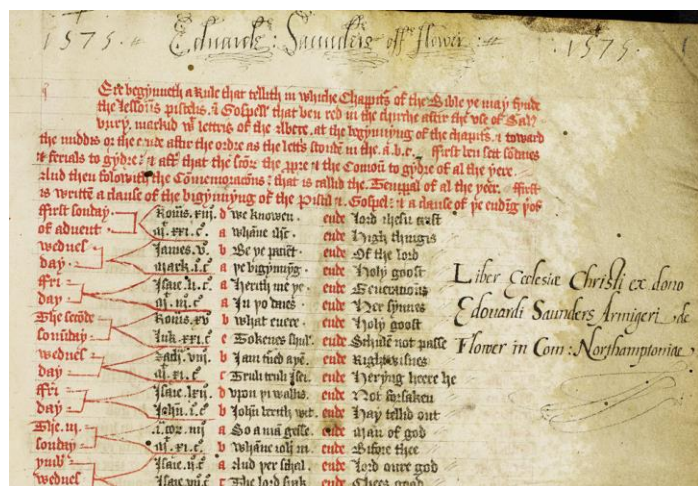 1575. Edwarde: Saunders off Flower: 1575.
Ere begynneth a Rule that tellith in whiche Chappitris of the Bible ye may fynde
the lessouns pistelis. & Gospels that ben red in the chirche aftir the vse of
markid wt lettris of the at the bigynnyng of the chapitris. & toward
the myddis or the ende aftir the ordre as the lettris stonde in the a.b.c. ffirst ben sett sondaies
& ferials to gydre: & aftir that the the & the Comoun to gydre of al the yeer.
And then folowith the Comemoracions: that is callid the Temporal of al the yeer. ffirst
is writen a clause of the bigynnyng of the Pistil & Gospel: & a clause of þe ending
ffirst sonday Romis. xiij. d we knowen. ende lord ihesu crist
of advent. mt. xxi. c a whanne ihc. ende High thingis
wednes James. v. b Be ye pacient ende Of the lord
day. mark. i. c a þe bigynnyng. ende Holy goost
ffri Isaie. li. c a Herith me ye ende Generacions
day. mt. iij. c a In þo daies ende Her synnes
The secode Romis. xv b what euere. ende Holy goost
sonday Luk. xxi. c e Tokenes shul. ende Schule not passe
wednes viij. b I am turned aye. ende Rightwisnes
day mt. xi. c c Truli truli I sei. ende Hering heere he
ffri Isaie. lxij. d vpon þi wallis. ende Not forsaken
day. John. i. c b John berith wit. ende Hay tellid out
The. iij. i. cor. iiij a So a man gesse. ende Man of god
sonday mt. xi. c b Whanne ioh in. ende Bifore thee
ymb Isaie. ij. c a And þer schal. ende Lord oure god
wednes Isaie. vij. c c The lord spak ende god
Liber Ecclesiæ Christi ex dono
Edouardi Saunders Armigeri de
Flower in Com: Northamptoniae